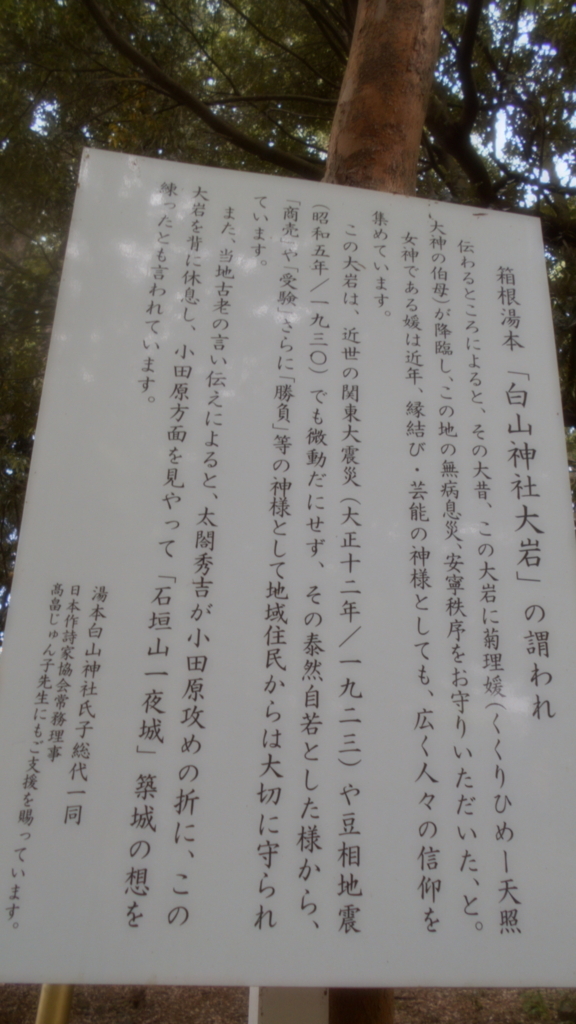 箱根湯本「白山神社大岩」の謂われ
伝わるところによると、その大昔、この大岩に菊理媛（くくりひめー天照
大神の伯母）が降臨し、この地の無病息災、安寧秩序をお守りいただいた、と。
女神である媛は近年、縁結び・芸能の神様としても、広く人々の信仰を
集めています。
この大岩は、近世の関東大震災（大正十二年／一九二三）や豆相地震
（昭和五年／一九三〇）でも微動だにせず、その泰然自若とした様から、
「商売」や「受験」さらに「勝負」等の神様として地域住民からは大切に守られ
ています。
また、当地古老の言い伝えによると、太閤秀吉が小田原攻めの折に、この
大岩を背に休息し、小田原方面を見やって「石垣山一夜城」築城の想を
練ったとも言われています。
湯本白山神社氏子総代一同
日本作詩家協会常務理事
高畠じゅん子先生にもご支援を賜っています。